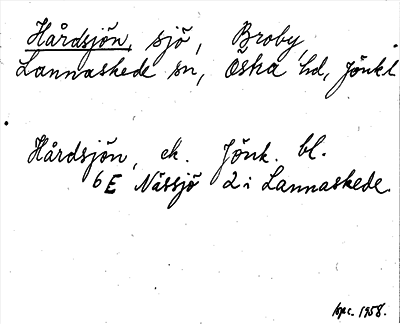 Hårdsjön, sjö, Broby,
Lannaskede sn, Östra hd, Jönk l
Hårdsjön, ek. Jönk. bl.
6E Nässjö 2 i Lannaskede.
1958.